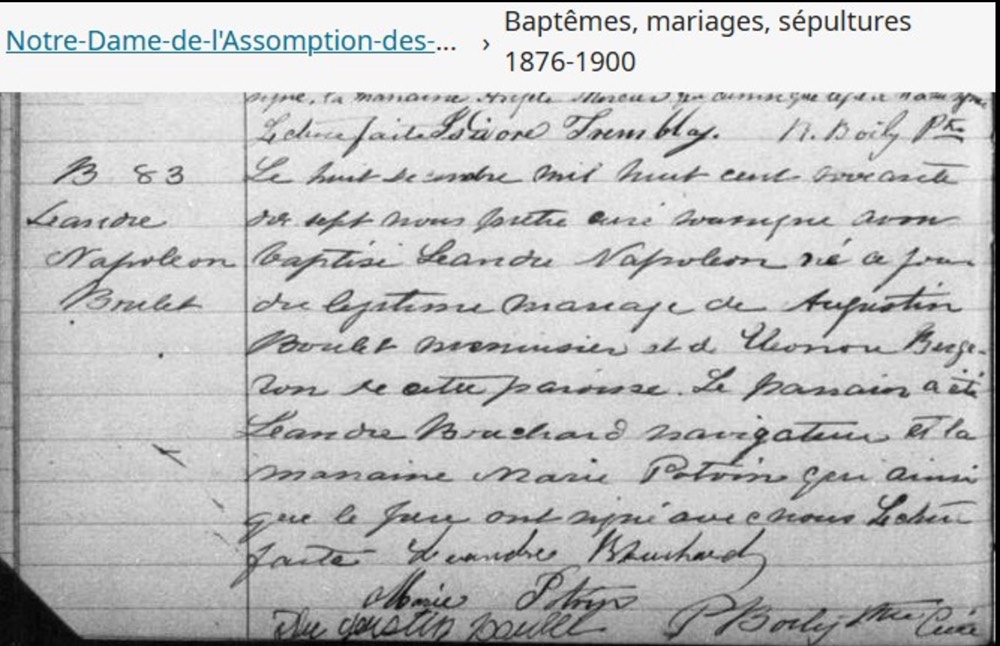 Notre-Dame-de-l'Assomption-des-... › Baptêmes, mariages, sépultures
1876-1900
signé, la marraine Angèle Mercier
Lecture faite Isidore Tremblay. R. Boily Ptre
B 83
Leandre
Napoleon
Boulet
Le huit decembre mil huit cent soixante
dix sept nous pretre curé soussigné avons
baptisé Leandre Napoleon né ce jour
du legitime mariage de Augustin
Boulet menuisier et de Eleonore Berge-
ron de cette paroisse. Le parrain a été
Leandre Bouchard navigateur et la
marraine Marie Potvin qui ainsi
que le pere ont signé avec nous Lecture
faite Leandre Bouchard
Marie Potvin
Augustin Boulet R Boily Ptre Curé